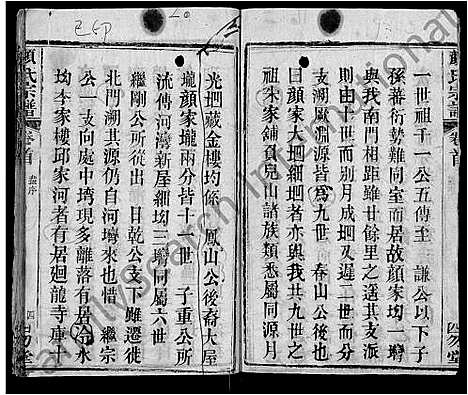 顏氏宗譜
卷首
四
易堂
一世祖千一公五傳至 謙公以下子
孫蕃衍勢難同室而居故顏家㘭一塆
與我南門相距雖廿餘里之遙其支派
支溯厥淵源皆為九世 春山公後也
則在一世而別月成垇又遲二世而分
曰顏家大垇細垇者亦與我共九世
祖朱家舖貟兒山諸族類悉屬同源月
光垇藏金樓圴係 鳳山公後裔大屋
壠顏家壠兩分皆十一世 子重公所
流傳河灣新屋細㘭三塆同屬六世
繼剛公所從出 日乾公支下雖遷徙
北門溯其源仍自河塆來也惜 繼宗
公一支向處中塆現多離落有居冷水
㘭李家樓邱家河者有居廻龍寺庫
顏氏宗譜
卷首
四
易堂